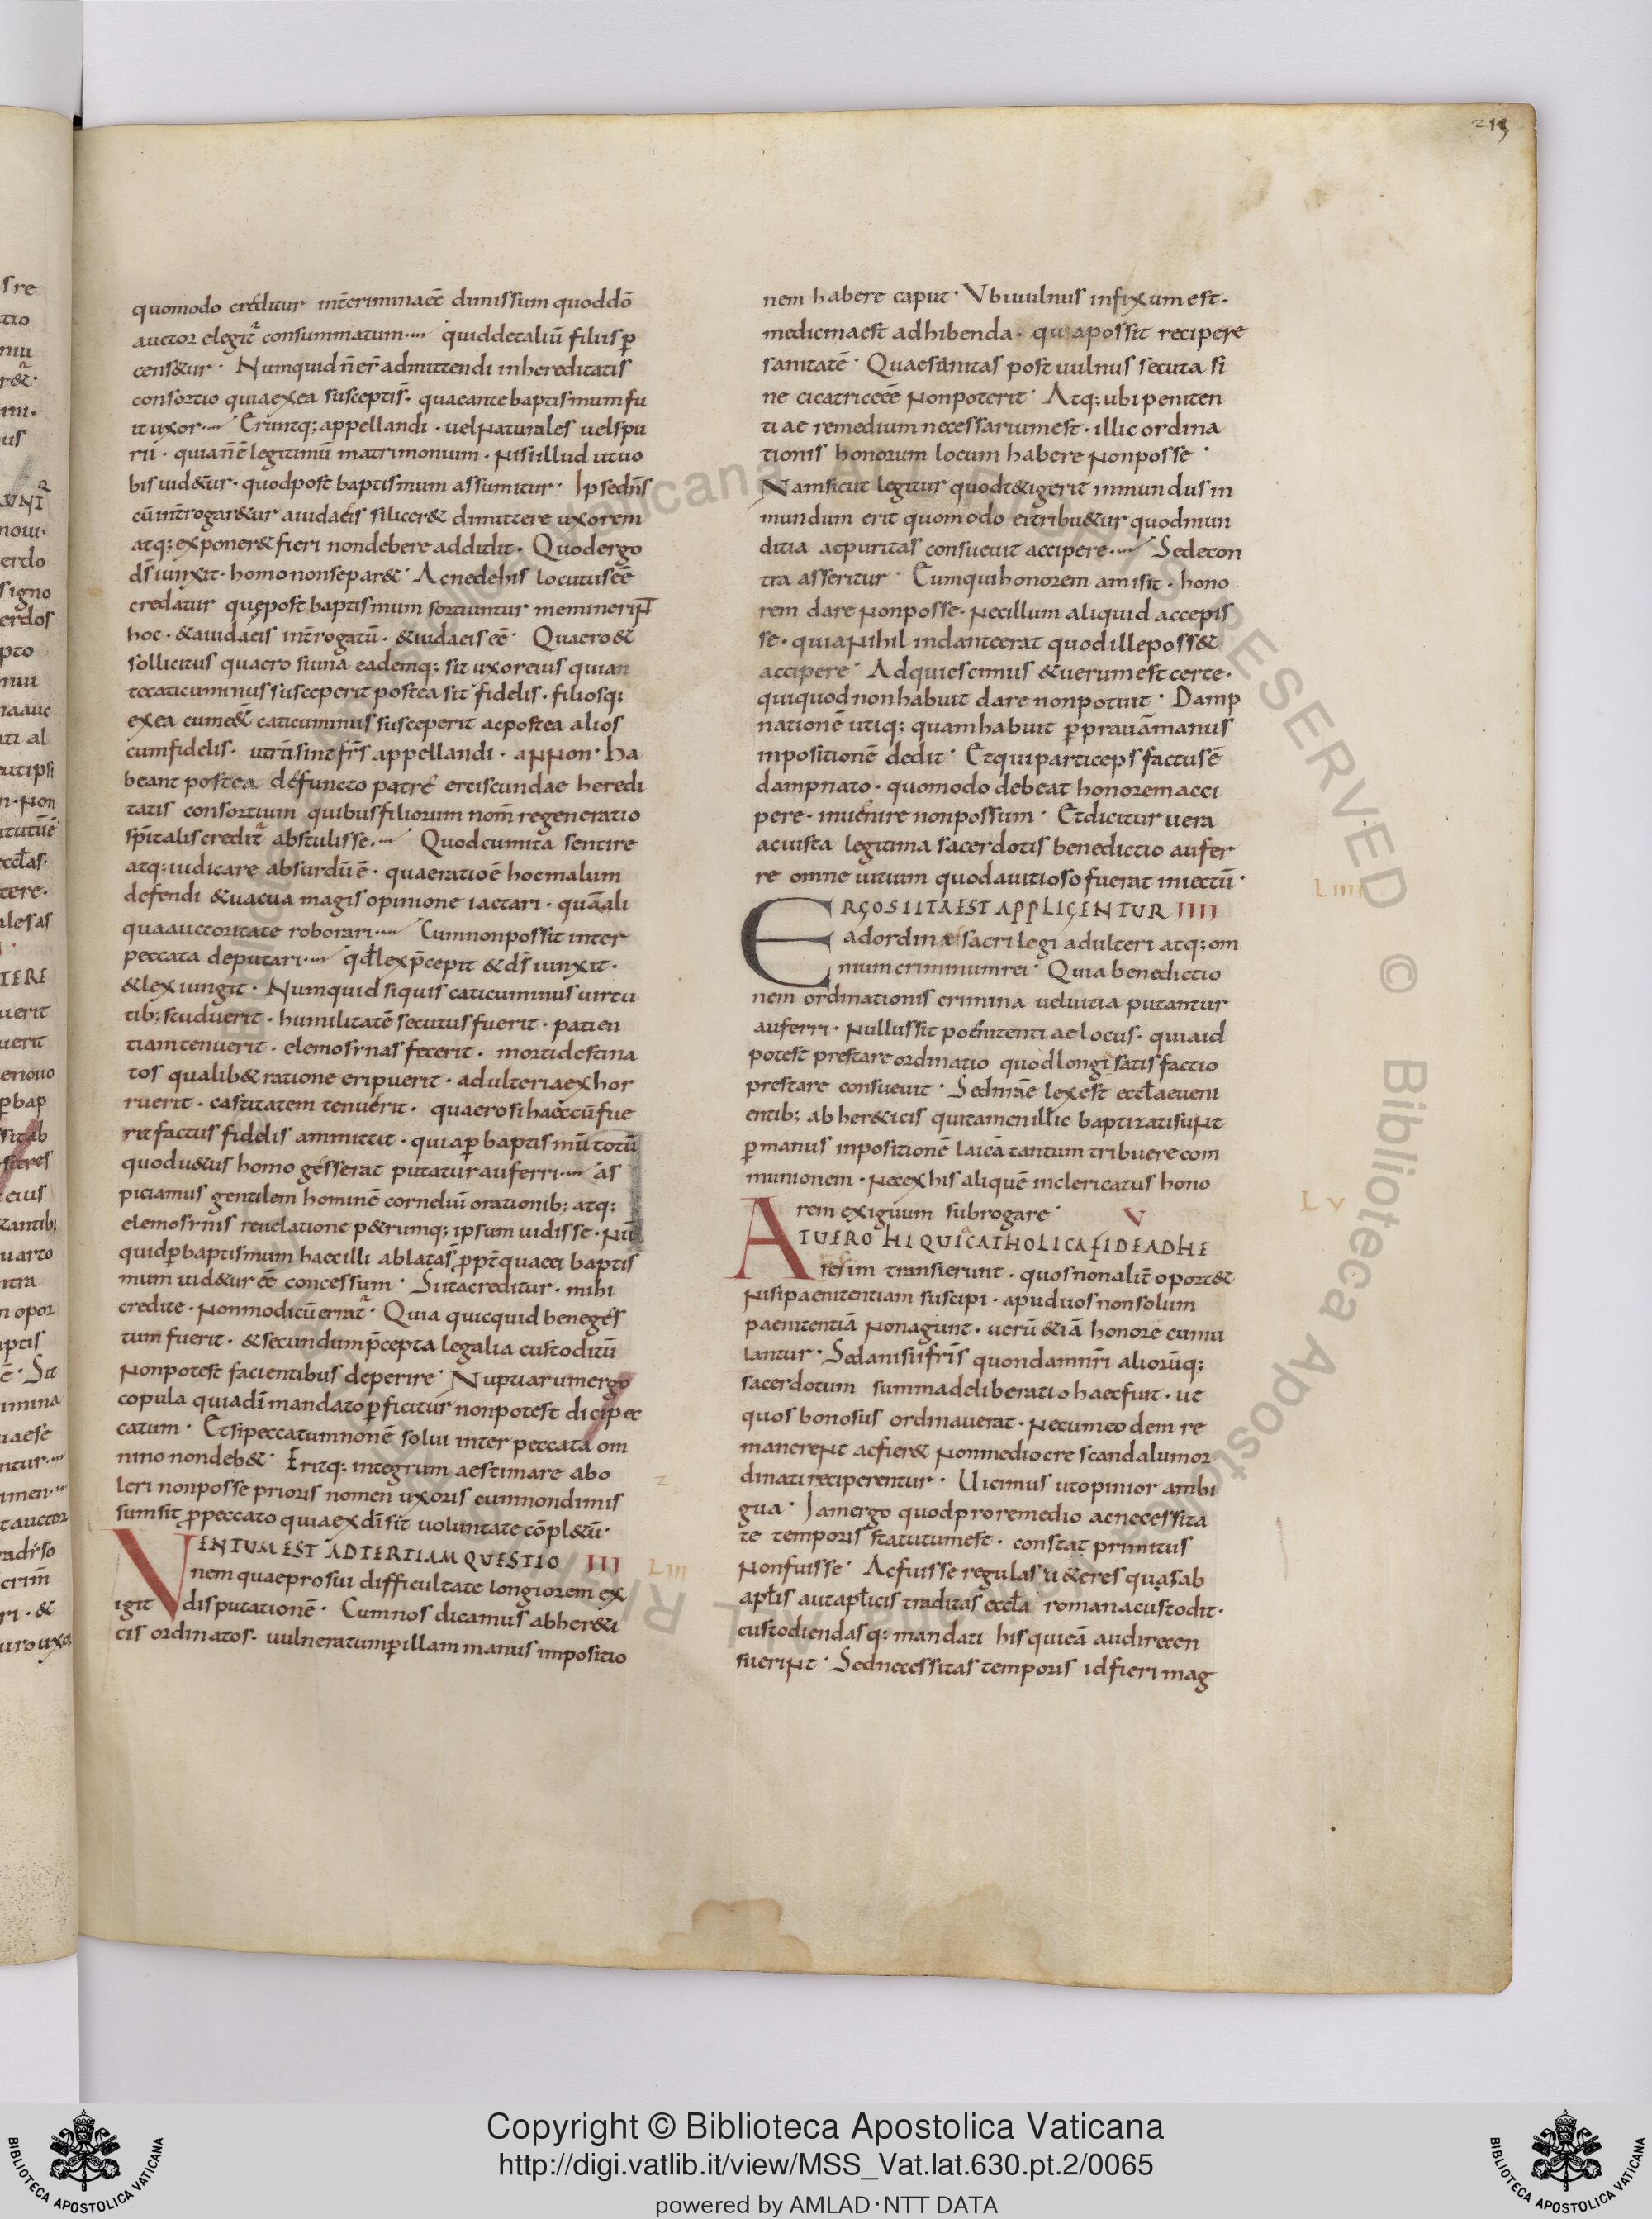 213
quomodo creditur int̄ criminaeē dimissum quoddō
auctor elegit̄ consummatum···· quiddetaliū filiis ꝑ
cens&ur· Numquid n̄ er̄ admittendi inhereditatis
consortio quiaexea susceptis̄· quaeantebaptismum fu
it uxor···· Eruntq; appellandi· uelNaturales uelspu
rii· quian̄ē legitimū matrimonium· Nisiillud utuo
bis uid&ur· quodpost baptismum assumitur· Ipsedn̄s
cūint̄rogar&ur aiudaeis silicer& dimittere uxorem
atq; exponer& fieri nondebere addidit· Quodergo
ds̄ iunxit· homo nonsepar&· Acnedehis locutuseē
credatur quępost baptismum sortiuntur memineriNT
hoc· &aiudaeis int̄rogatū· &iudaeis eē· Quaero &
sollicitus quaero siuna eademq; sit uxoreius quian
tecaticuminus susceperit postea sit fidelis· filiosq;
exea cume&̄ caticuminus susceperit acpostea alios
cumfidelis· utrū sint fr̄s appellandi· aNNon· ha
beant postea defuncto patre erciscundae heredi
tatis consortium quibusfiliorum nom̄ regeneratio
sp̄italis credit̄ abstulisse···· Quodcumita sentire
atq; iudicare absurdū ē· quaeratioē hocmalum
defendi &uacua magis opinione iactari· quāali
quaauctoritate roborari···· Cumnonpossit inter
peccata deputari···· qd̄ lex p̄cepit & ds̄ iunxit·
&lex iungit· Numquid siquis caticuminus uirtu
tib; studuerit· humilitatē secutus fuerit· patien
tiamtenuerit· elemosynas fecerit· mortidestina
tos qualib& ratione eripuerit· adulteriaexhor
ruerit· castitatem tenuerit· quaero sihaeccū fue
rit factus fidelis ammittit· quiaꝑ baptismū totū
quodu&us homo gesserat putatur auferri···· as
piciamus gentilem hominē corneliū orationib; atq;
elemosynis reuelatione p&rumq; ipsum uidisse· Nū
quidꝑbaptismum haecilli ablata s̄ ꝓpt̄quaeei baptis
mum uid&ur eē concessum· Siitacreditur· mihi
credite· Nonmodicū errat̄· Quia quicquid beneges
tum fuerit· &secundum p̄cepta legalia custoditū
Nonpotest facientibus deperire· Nuptiarumergo
copula quiadī mandato ꝑficitur nonpotest dicipec
catum· Etsipeccatumnonē solui inter peccata om
nino nondeb&· Eritq; integrum aestimare abo
leri nonposse prioris nomen uxoris cumnondimis
sumsit ꝓpeccato quiaexdī sit uoluntate cōpl&ū·
VENTUM EST ADTERTIAM QUESTIO III LIII
nem quaeprosui difficultate longiorem ex
igit disputationē· Cumnos dicamus abher&i
cis ordinatos· uulneratumꝑillammanus impositio
nem habere caput· Vbiuulnus infixum est·
medicinaest adhibenda· quaapossit recipere
sanitatē· Quaesanitas post uulnus secuta si
ne cicatriceeē Nonpoterit· Atq; ubi peniten
tiae remedium necessariumest· illic ordina
tionis honorum locum habere Nonposse·
Namsicut legitur quodt&igerit inmundus in
mundum erit quomodo eitribu&ur quodmun
ditia acpuritas consueuit accipere···· Sedecon
tra asseritur· Eumquihonorem amisit· hono
rem dare Nonposse· Necillum aliquid accepis
se· quiaNihil indanteerat quodilleposs&
accipere· Adquiescimus &uerumest certe·
quiquodnonhabuit dare nonpotuit· Damp
nationē utiq; quamhabuit ꝑprauāmanus
inpositionē dedit· Etquiparticeps factusē
dampnato· quomodo debeat honoremacci
pere· inuenire nonpossum· Etdicitur uera
aciusta legitima sacerdotis benedictio aufer
re omne uitium quodauitioso fuerat iniectū·
ERGO SI ITA EST APPLICENTUR IIII LIIII
adordinē sacrilegi adulteri atq; om
nium criminumrei· Quia benedictio
nem ordinationis crimina uel uitia putantur
auferri· Nullus sit poenitentiae locus· quiaid
potest prestare ordinatio quodlongi satisfactio
prestare consueuit· Sednr̄ae lexest eccl̄aeueni
entib; ab her&icis quitamenillic baptizatisuNt
ꝑ manus inpositionē laicā tantum tribuere com
munionem· Necexhis aliquē inclericatus hono
rem exiguum subrogare· V LV
AT UERO HI QUI CATHOLICA FIDE ADHE
resim transierunt· quos nonalit̄ oport&
Nisipaenitentiam suscipi· apuduos nonsolum
paenitentiā Nonagunt· uerū &iā honore cumu
lantur· Sedanisii fr̄is quondamnr̄i aliorūq;
sacerdotum summadeliberatio haecfuit· ut
quos bonosus ordinauerat· Necumeodem re
manereNt acfier& Nonmediocre scandalumor
dinatireciperentur· Uicimus utopinior ambi
gua· Iamergo quodproremedio acnecessita
te temporis statutumest· constat primitus
Nonfuisse· Acfuisse regulas u&eres quasab
apl̄is autapl̄icis traditas eccl̄a romanacustodit·
custodiendasq; mandati hisquieā audirecon
sueriNt· Sednecessitas temporis idfieri mag
Copyright © Biblioteca Apostolica Vaticana
http://digi.vatlib.it/view/MSS_Vat.lat.630.pt.2/0065
powered by AMLAD·NTT DATA